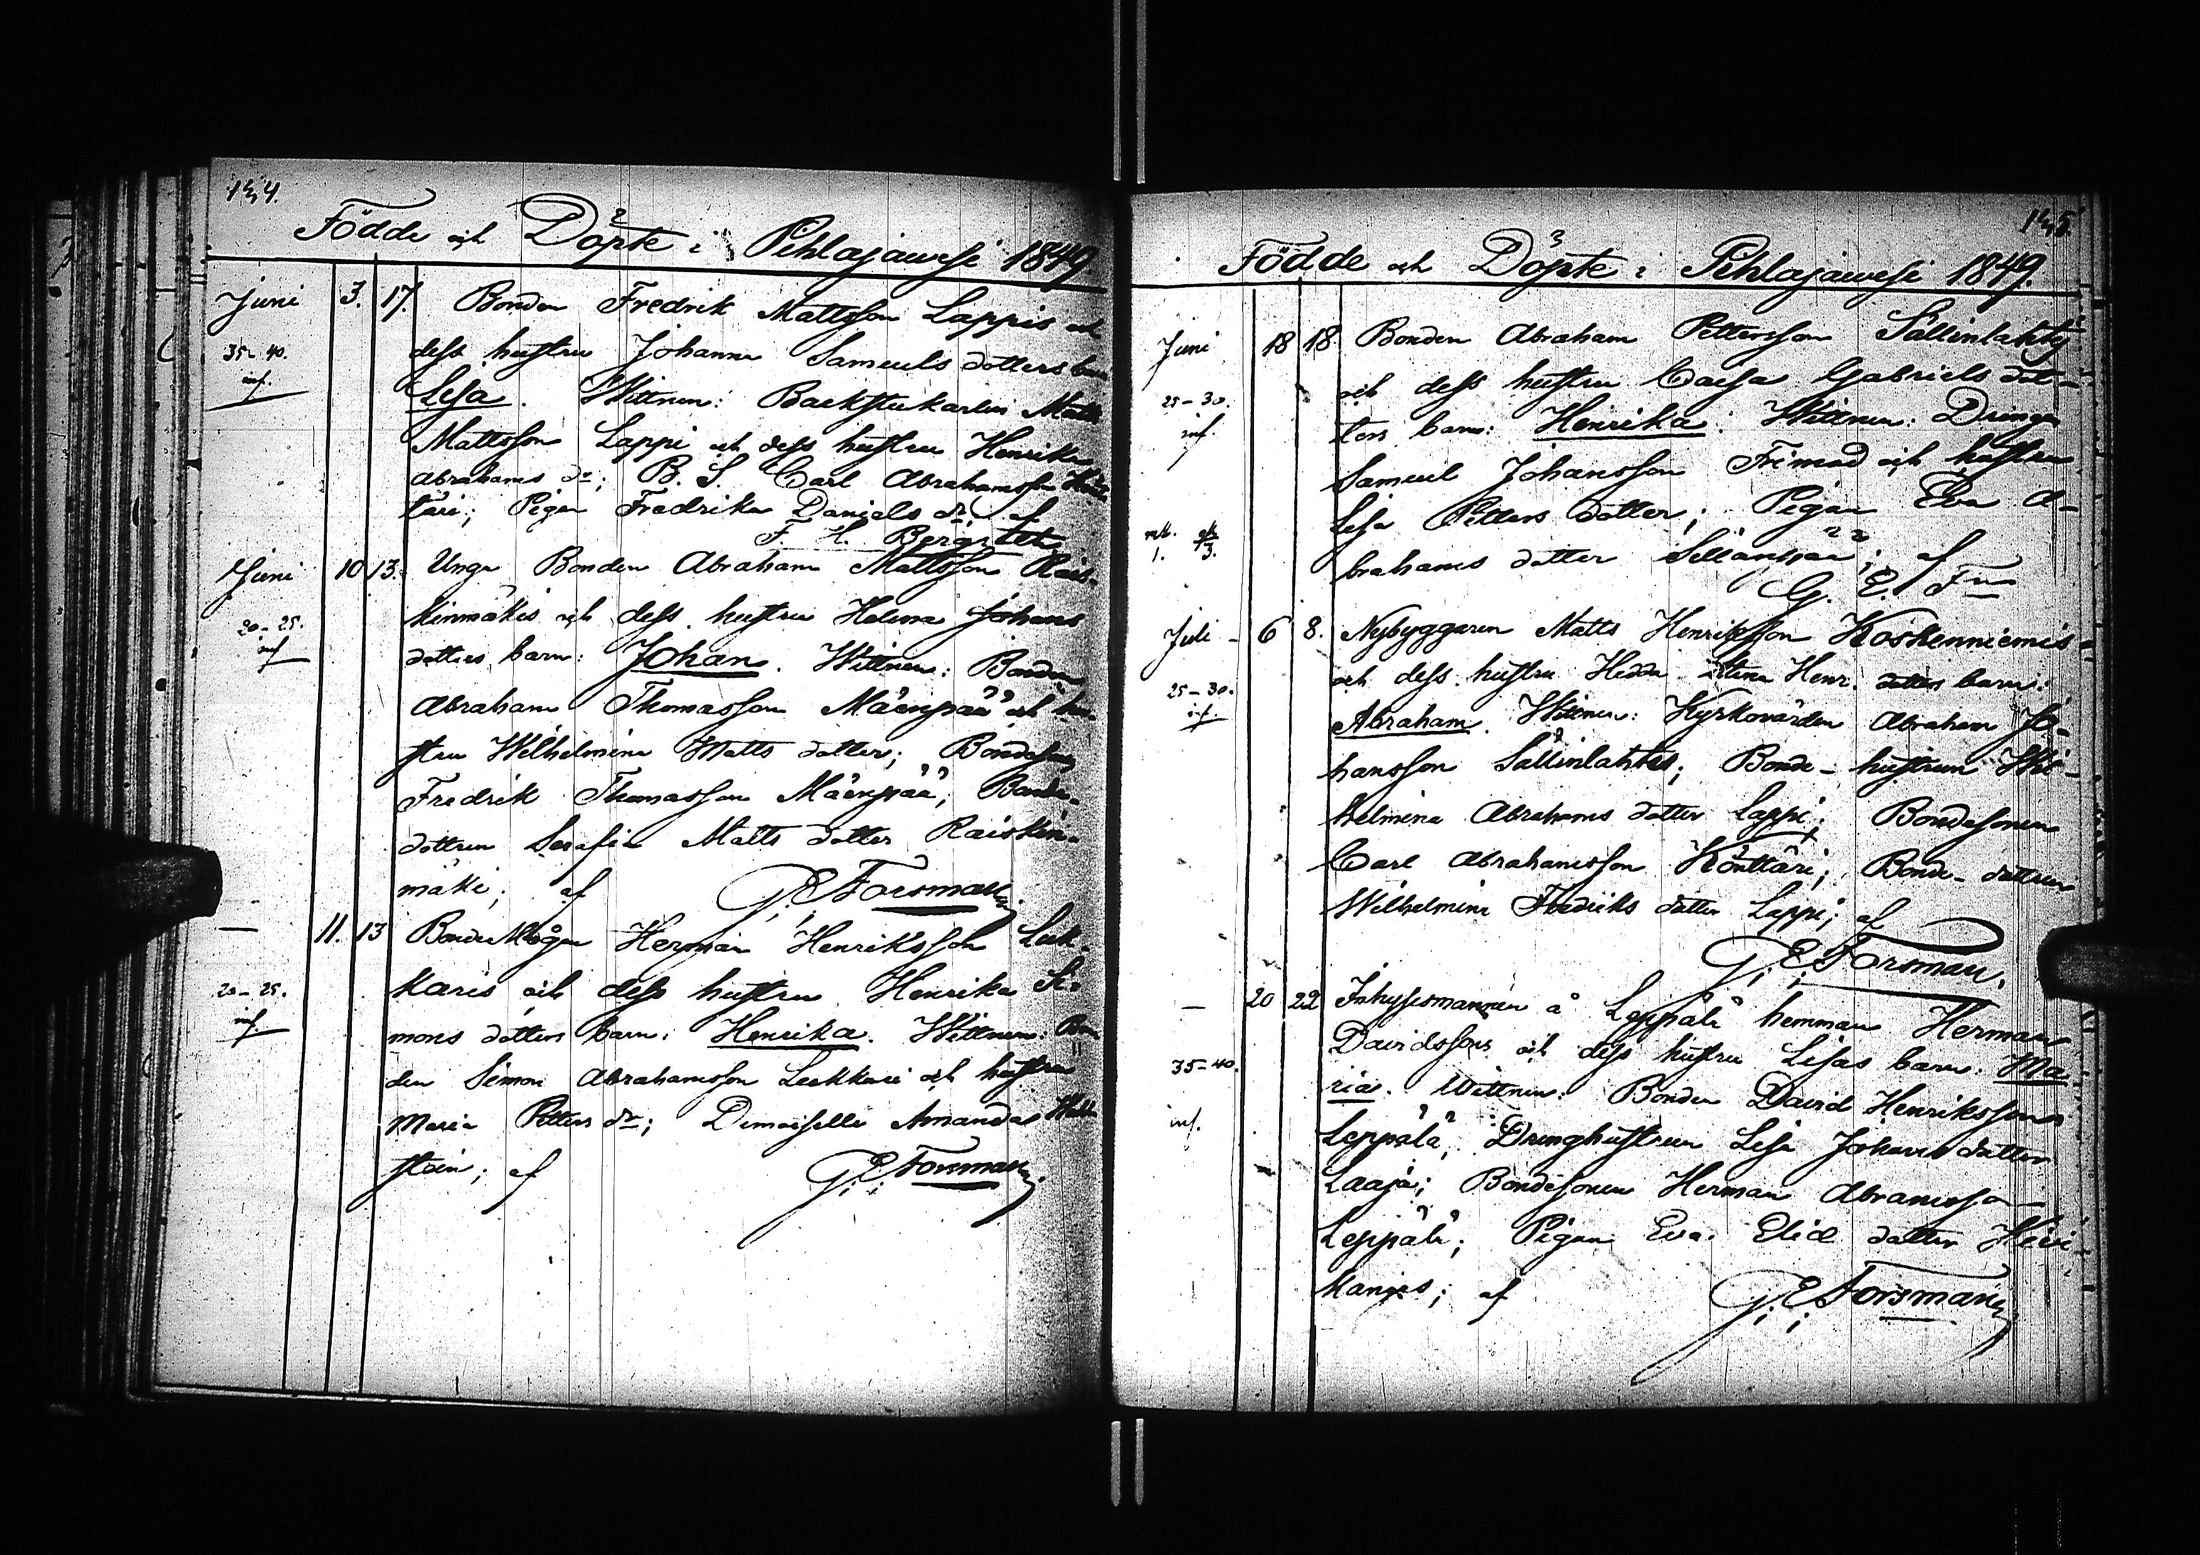 144.
Födde och Döpte i Pihlajawesi 1849
Juni 3. 17. Bonden Fredrik Mattsson Lappis och
35-40. dess hustru Johanna Samuels dotters barn
inf.
Lisa. Wittnen: Backstukarlen Matts
Mattsson Lappi och dess hustru Henrika
Abrahams dr; B. S. Carl Abrahamsson Könt-
täri; Pigan Fredrika Daniels dr; af
F. H. Bergroth
Juni 10 13. Unge Bonden Abraham Mattsson Rais-
kinmäkis och dess hustru Helena Johans
20-25.
inf
dotters barn: Johan. Wittnen: Bonden
Abraham Thomasson Mäenpää och hu-
stru Wilhelmina Matts dotter; Bondeson
Fredrik Thomasson Mäenpää; Bonde-
dottren Serafia Matts dotter Raiskin-
mäki; af G. E. Forsman.
— 11. 13 Bonde Mågen Herman Henriksson Leuk-
20-25. karis och dess hustru Henrika Si-
inf.
mons dotters barn: Henrika. Wittnen: Bon
den Simon Abrahamsson Leukkari och hustru
Maria Petters dr; Demoiselle Amanda
stein; af G. E. Forsman.
145.
Födde och Döpte i Pihlajawesi 1849.
Juni 18 18 Bonden Abraham Pettersson Sällinlahtis
25-30. och dess hustru Caisa Gabriels dot-
inf.
ters barn: Henrika. Wittnen: Drängen
Samuel Johansson Frimad och hustru
Lisa Petters dotter; Pigan Eva A-
1. 3.
brahams dotter Sillanpää; af
G. E. Fnn
Juli - 6 8. Nybyggaren Matts Henriksson Koskenniemis
25-30. och dess hustru Hedda Stina Henr. dotters barn:
inf.
Abraham. Wittnen: Kyrkovärden Abraham Jo-
hansson Sällinlahti; Bonde-hustrun Wil-
helmina Abrahams dotter Lappi; Bondesonen
Carl Abrahamsson Könttäri; Bonde-dottren
Wilhelmina Fredriks dotter Lappi; af
G. E. Forsman.
— 20 22 Inhysesmannen å Leppälä hemman Herman
35-40. Davidssons och dess hustru Lisas barn: Ma-
inf.
ria. Wittnen: Bonden David Henriksson
Leppälä; Dränghustrun Lisa Johans dotter
Laaja; Bondesonen Herman Abramsson
Leppälä; Pigan Eva Elie dotter Hievi-
kangas; af G. E. Forsman